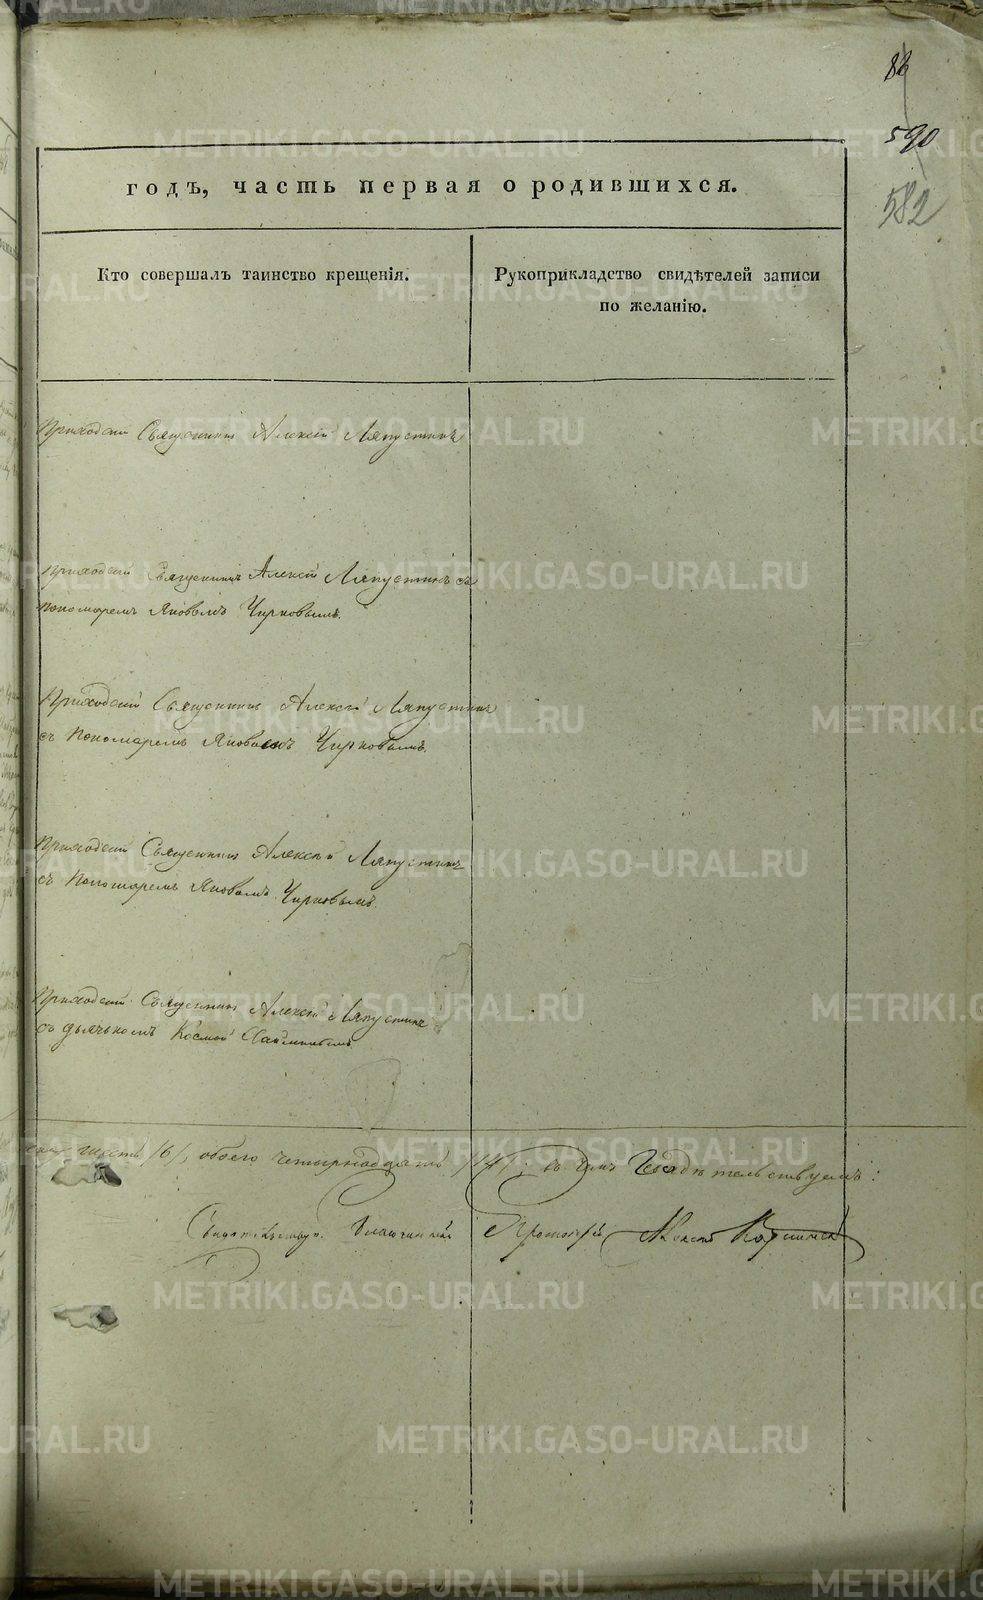 590
582
годъ, часть первая о родившихся.
Кто совершалъ таинство крещенія.
Рукоприкладство свидѣтелей записи
по желанію.
Приходскій Священникъ Алексій Ляпустинъ
Приходскій Священникъ Алексій Ляпустинъ съ
пономаремъ Яковомъ Чирковымъ.
Приходскій Священникъ Алексій Ляпустинъ
съ Пономаремъ Яковомъ Чирковымъ.
Приходскій Священникъ Алексій Ляпустинъ
съ Пономаремъ Яковомъ Чирковымъ.
Приходскій Священникъ Алексій Ляпустинъ
съ дьячькомъ Космой
шесть /6/, обоего четырнадцать /14/; въ чемъ свидѣтельствуемъ:
Благочинный Протоіерей
METRIKI.GASO-URAL.RU